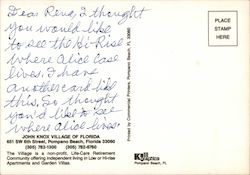 Dear Rena, I thought
you would like
to see the Hi-Rise
where Alice Case
lives. I have
another card like
this, so thought
you'd like to see
where Alice lives.
JOHN KNOX VILLAGE OF FLORIDA
651 SW 6th Street, Pompano Beach, Florida 33060
(305) 782-1300 (305) 782-8760
The Village is a non-profit, Life-Care Retirement
Community offering independent living in Low or Hi-rise
Apartments and Garden Villas.
Printed by Commercial Printers, Pompano Beach, FL 33060
PLACE
STAMP
HERE
Graphics
Pompano Beach, FL